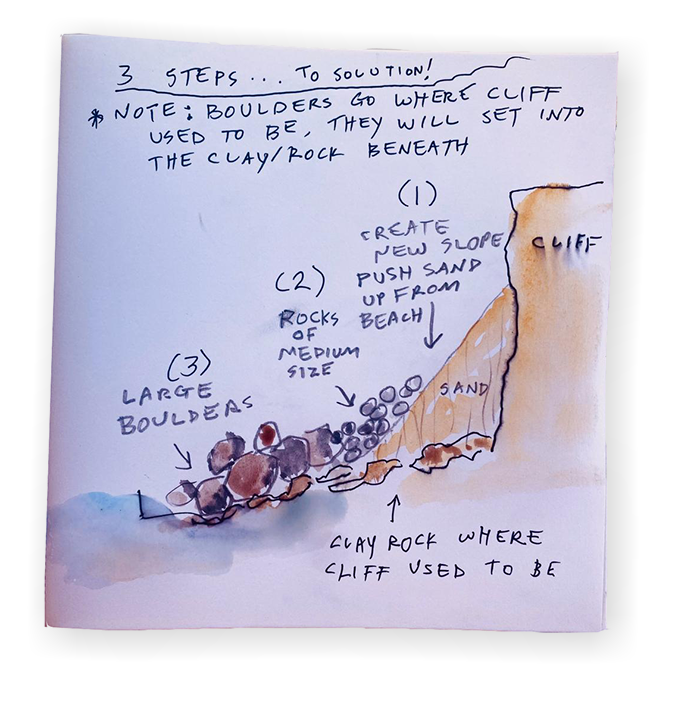 3 STEPS... TO SOLUTION!
* NOTE: BOULDERS GO WHERE CLIFF
USED TO BE, THEY WILL SET INTO
THE CLAY/ROCK BENEATH
(1)
CREATE
NEW SLOPE
PUSH SAND
UP FROM
BEACH
CLIFF
(2)
ROCKS
OF
MEDIUM
SIZE
SAND
(3)
LARGE
BOULDERS
CLAY ROCK WHERE
CLIFF USED TO BE